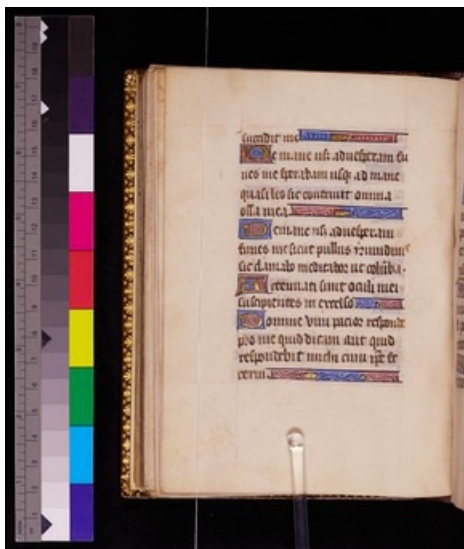 succidit me
De mane usq aduesperam fi
nies me sperabam usq ad mane
quasi leo sic contriuit omnia
ossa mea
De mane usq aduesperam
finies me sicut pullus hirundinis
sic clamabo meditabor ut coluba
Attenuati sunt oculi mei
suspicientes in excelso
Domine vim patior responde
pro me quid dicam aut quid
respondebit michi cum ipe fe
cerim